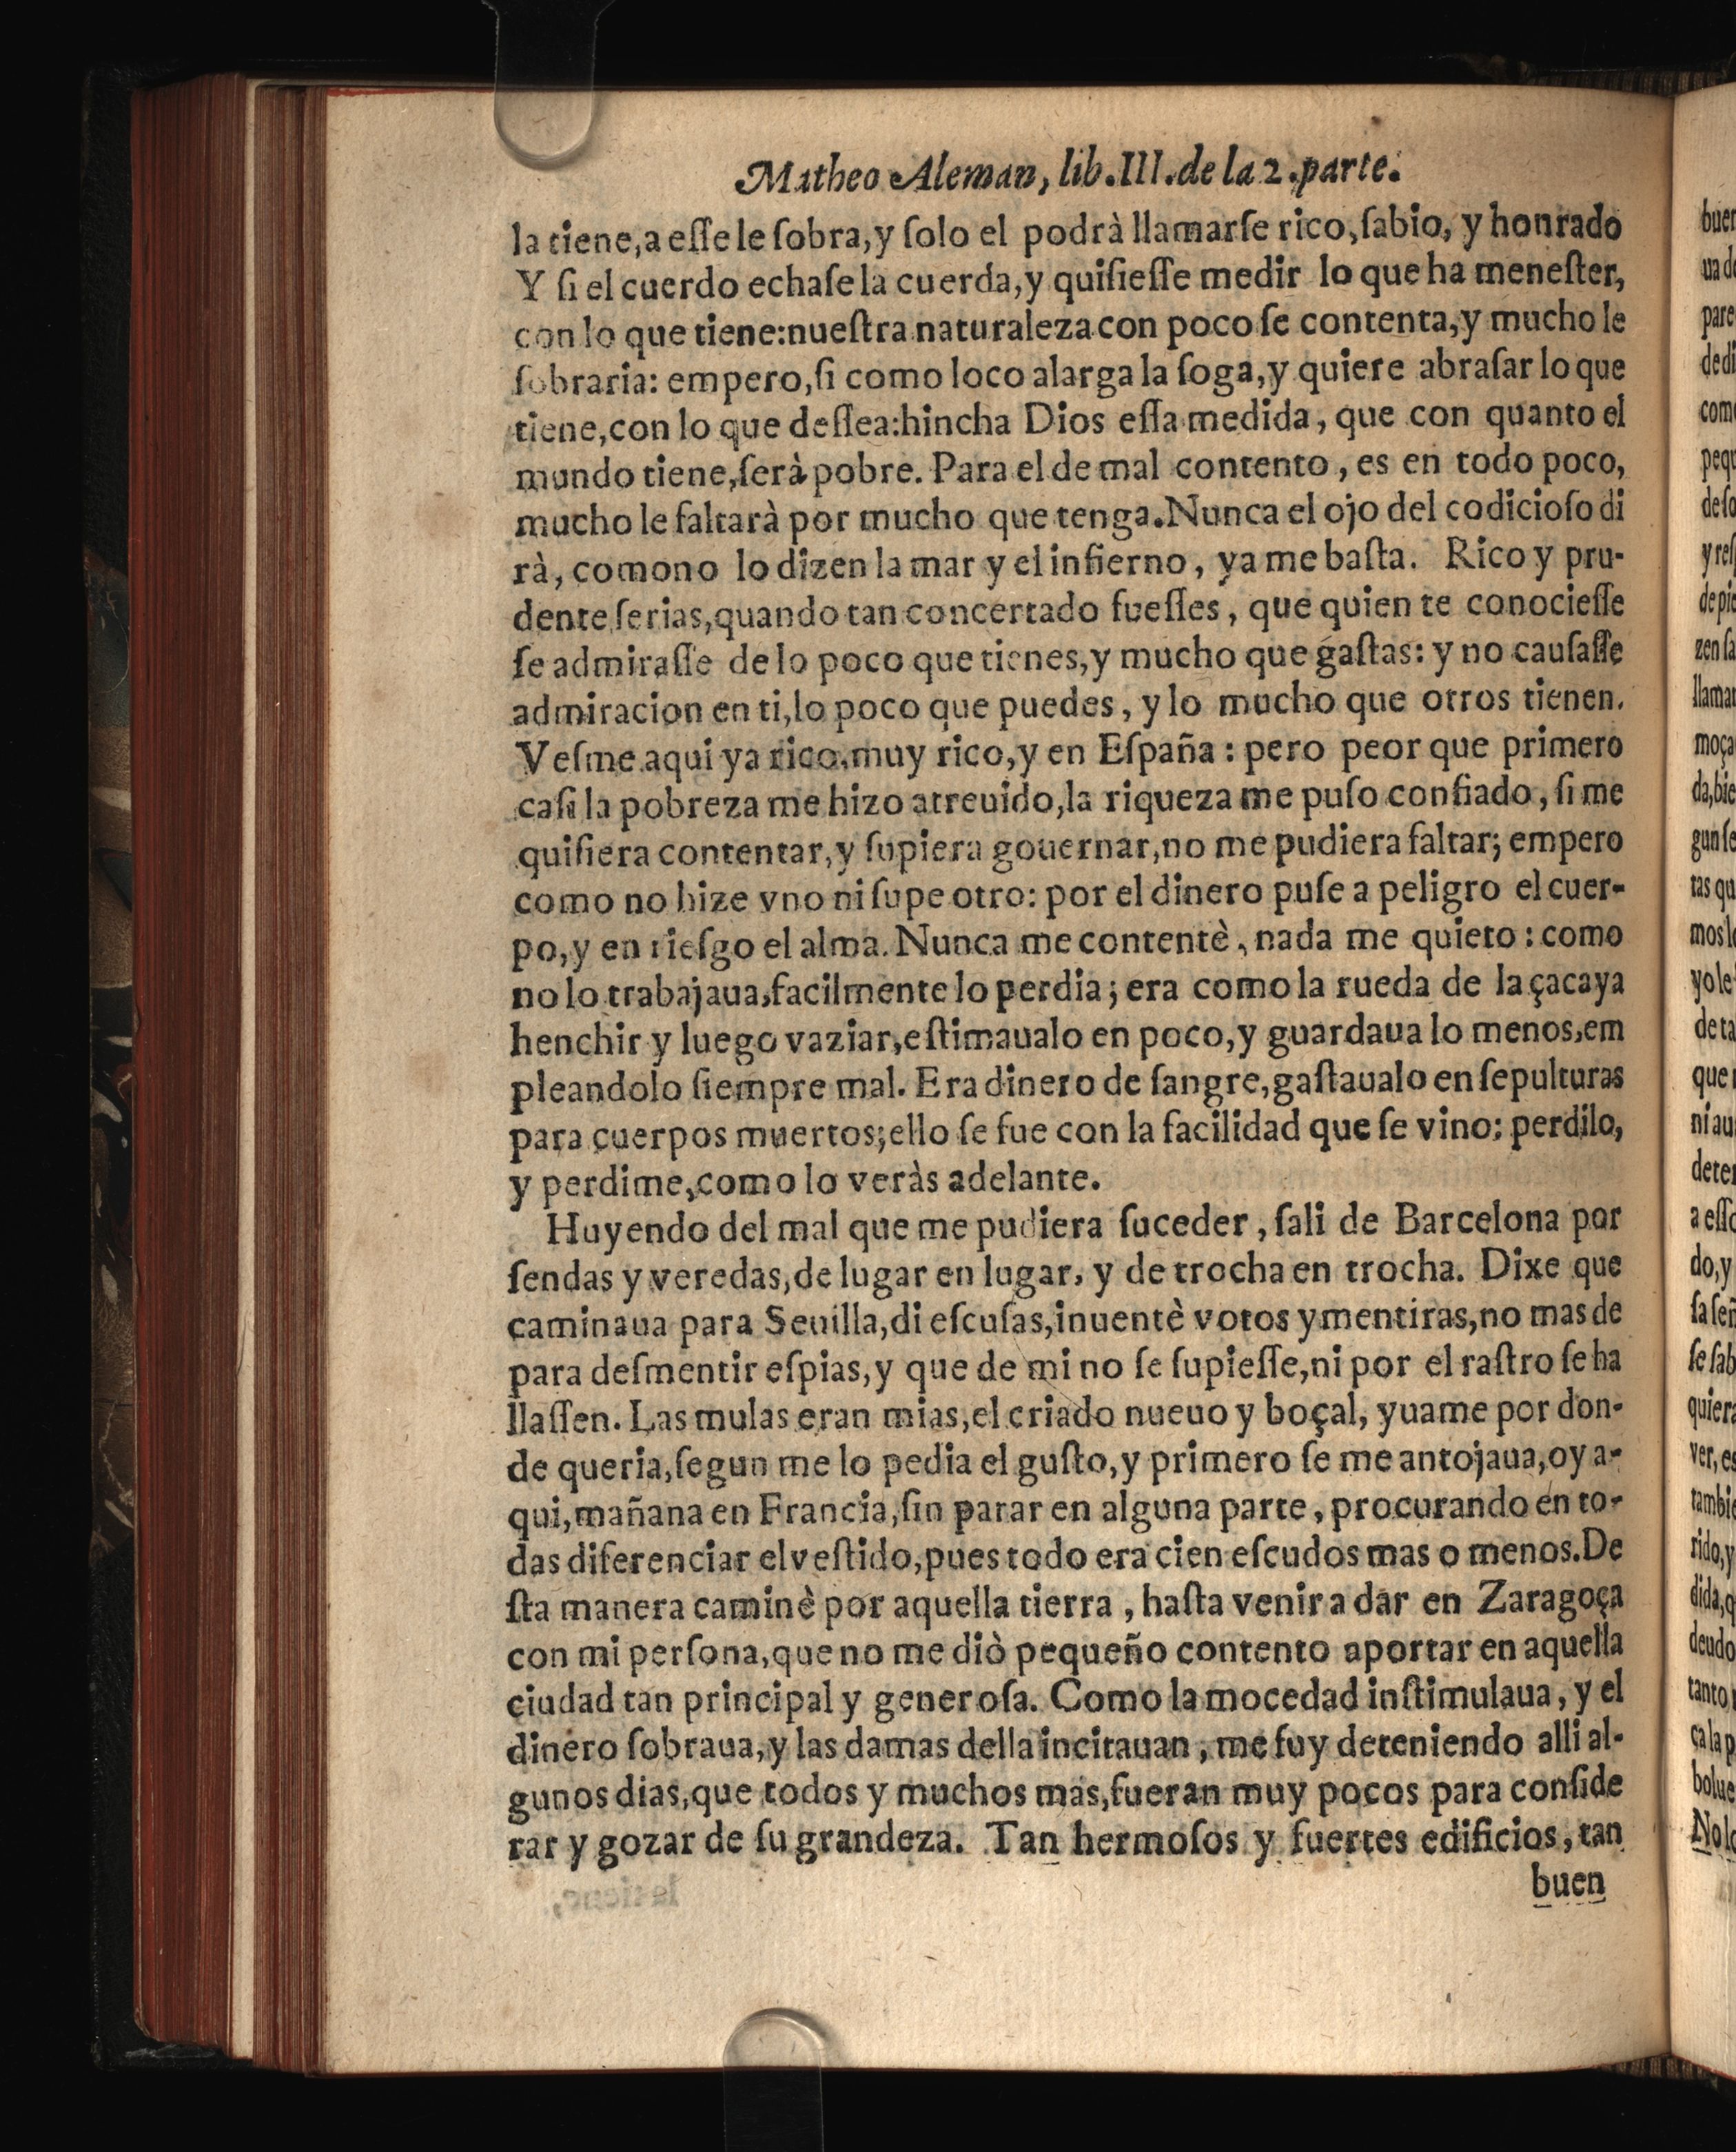 Matheo Aleman, lib.III.de la 2.parte.
la tiene,a eſſe le ſobra,y ſolo el podrà llamarſe rico,ſabio, y honrado
Y ſi el cuerdo echaſe la cuerda,y quiſieſſe medir lo que ha meneſter,
con lo que tiene:nueſtra naturaleza con poco ſe contenta,y mucho le
ſobraria: empero,ſi como loco alarga la ſoga,y quiere abraſar lo que
tiene,con lo que deſſea:hincha Dios eſſa medida, que con quanto el
mundo tiene,ſerà pobre. Para el de mal contento, es en todo poco,
mucho le faltarà por mucho que tenga.Nunca el ojo del codicioſo di
rà, comono lo dizen la mar y el infierno, ya me baſta. Rico y pru-
dente ſerias,quando tan concertado fueſſes, que quien te conocieſſe
ſe admiraſſe de lo poco que tienes,y mucho que gaſtas: y no cauſaſſe
admiracion en ti,lo poco que puedes, y lo mucho que otros tienen.
Veſme aqui ya rico,muy rico,y en Eſpaña: pero peor que primero
caſi la pobreza me hizo atreuido,la riqueza me puſo confiado, ſi me
quiſiera contentar,y ſupiera gouernar,no me pudiera faltar; empero
como no hize vno ni ſupe otro: por el dinero puſe a peligro el cuer-
po,y en rieſgo el alma. Nunca me contentè, nada me quieto: como
no lo trabajaua,facilmente lo perdia; era como la rueda de la çacaya
henchir y luego vaziar,eſtimaualo en poco,y guardaua lo menos,em
pleandolo ſiempre mal. Era dinero de ſangre,gaſtaualo en ſepulturas
para cuerpos muertos;ello ſe fue con la facilidad que ſe vino: perdilo,
y perdime,como lo veràs adelante.
Huyendo del mal que me pudiera ſuceder, ſali de Barcelona por
ſendas y veredas,de lugar en lugar, y de trocha en trocha. Dixe que
caminaua para Seuilla,di eſcuſas,inuentè votos y mentiras,no mas de
para deſmentir eſpias,y que de mi no ſe ſupieſſe,ni por el raſtro ſe ha
llaſſen. Las mulas eran mias,el criado nueuo y boçal, yuame por don-
de queria,ſegun me lo pedia el guſto,y primero ſe me antojaua,oy a-
qui,mañana en Francia,ſin parar en alguna parte, procurando en to-
das diferenciar el veſtido,pues todo era cien eſcudos mas o menos.De
ſta manera caminè por aquella tierra, haſta venir a dar en Zaragoça
con mi perſona,que no me diò pequeño contento aportar en aquella
ciudad tan principal y generoſa. Como la mocedad inſtimulaua, y el
dinero ſobraua,y las damas della incitauan, me fuy deteniendo alli al-
gunos dias,que todos y muchos mas,fueran muy pocos para conſide
rar y gozar de ſu grandeza. Tan hermoſos y fuertes edificios, tan
buen